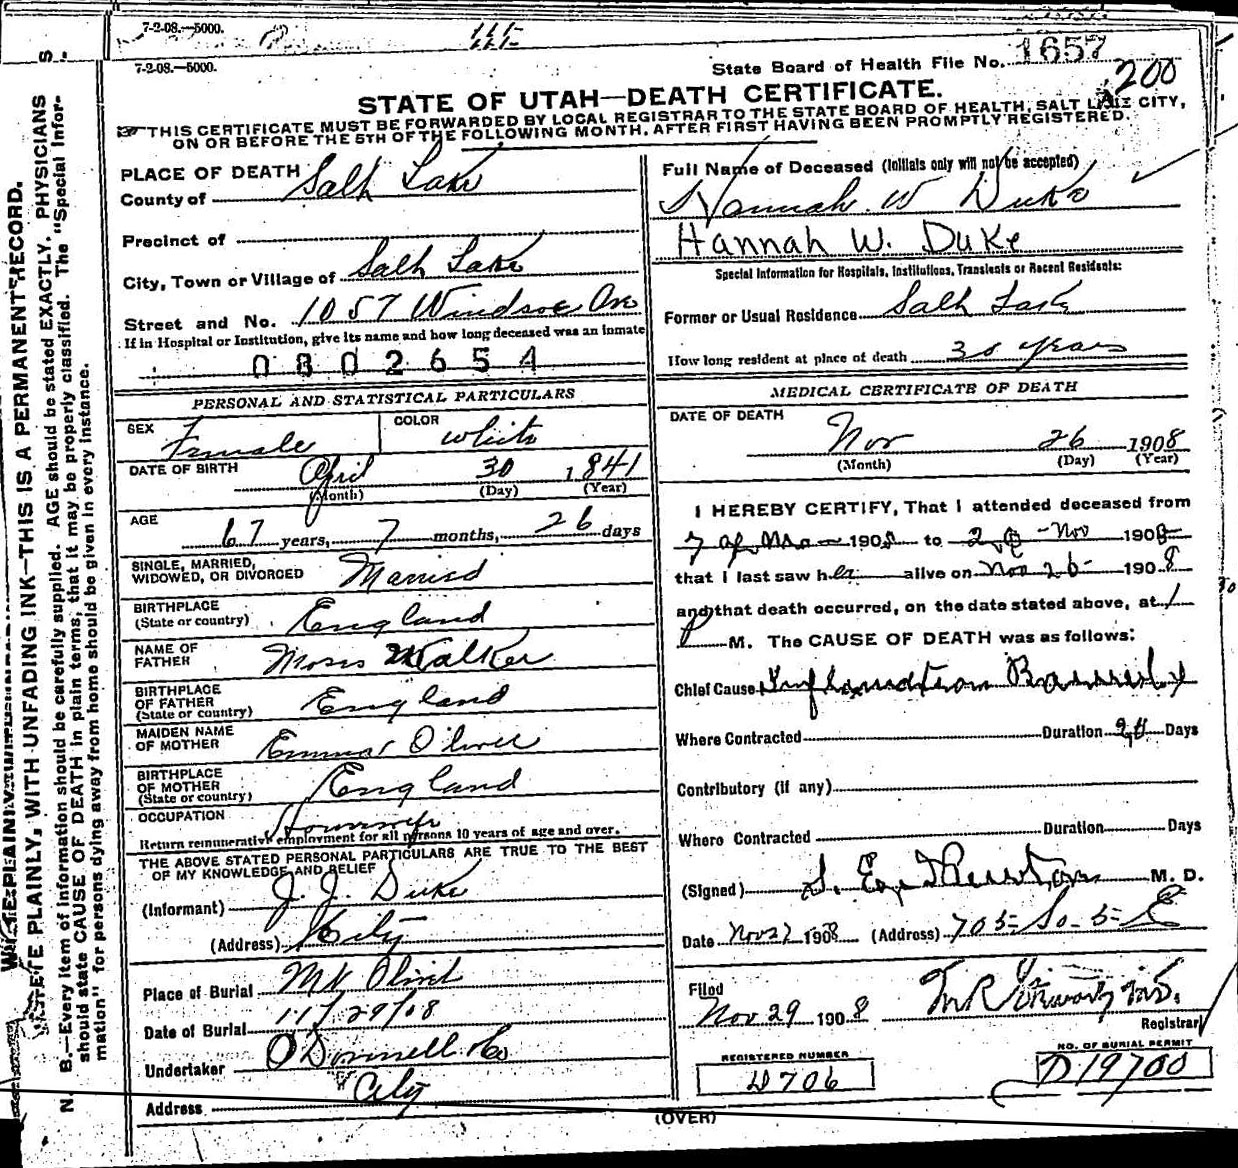 7-2-08.—5000.
7-2-08.—5000.
State Board of Health File No. 1657
200
STATE OF UTAH—DEATH CERTIFICATE.
THIS CERTIFICATE MUST BE FORWARDED BY LOCAL REGISTRAR TO THE STATE BOARD OF HEALTH, SALT LAKE CITY,
ON OR BEFORE THE 5TH OF THE FOLLOWING MONTH, AFTER FIRST HAVING BEEN PROMPTLY REGISTERED.
WRITE PLAINLY, WITH UNFADING INK—THIS IS A PERMANENT RECORD.
N. B.—Every item of information should be carefully supplied. AGE should be stated EXACTLY. PHYSICIANS
should state CAUSE OF DEATH in plain terms, that it may be properly classified. The "Special Infor-
mation" for persons dying away from home should be given in every instance.
PLACE OF DEATH
County of Salt Lake
Precinct of
City, Town or Village of Salt Lake
Street and No. 1057 Windsor Ave
If in Hospital or Institution, give its name and how long deceased was an inmate
0802654
PERSONAL AND STATISTICAL PARTICULARS
SEX Female COLOR White
DATE OF BIRTH April 30 1841
(Month) (Day) (Year)
AGE 67 years, 7 months, 26 days
SINGLE, MARRIED,
WIDOWED, OR DIVORCED Married
BIRTHPLACE
(State or country) England
NAME OF
FATHER Moses Walker
BIRTHPLACE
OF FATHER
(State or country) England
MAIDEN NAME
OF MOTHER Emma Oliver
BIRTHPLACE
OF MOTHER
(State or country) England
OCCUPATION Housewife
Return remunerative employment for all persons 10 years of age and over.
THE ABOVE STATED PERSONAL PARTICULARS ARE TRUE TO THE BEST
OF MY KNOWLEDGE AND BELIEF
(Informant) J. J. Duke
(Address) City
Place of Burial Mt Olivet
Date of Burial 11/29/08
Undertaker O'Donnell & Co
Address City
Full Name of Deceased (Initials only will not be accepted)
Hannah W Duke
Hannah W. Duke
Special Information for Hospitals, Institutions, Transients or Recent Residents:
Former or Usual Residence Salt Lake
How long resident at place of death 30 years
MEDICAL CERTIFICATE OF DEATH
DATE OF DEATH
Nov 26 1908
(Month) (Day) (Year)
I HEREBY CERTIFY, That I attended deceased from
7 1908 to Nov 1908
that I last saw her alive on Nov 26 1908
and that death occurred, on the date stated above, at 1
P M. The CAUSE OF DEATH was as follows:
Chief Cause
Where Contracted Duration 20 Days
Contributory (if any)
Where Contracted Duration Days
(Signed) S. E. Thurston M. D.
Date Nov 27 1908 (Address) 705 So 5 E
Filed
Nov 29 1908
Registrar
REGISTERED NUMBER
D706
NO. OF BURIAL PERMIT
D19700
(OVER)